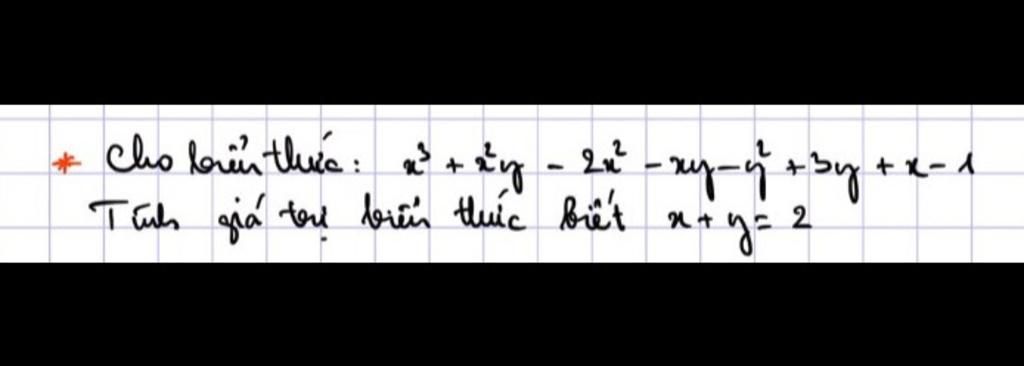 * Cho biểu thức: x³ + x²y - 2x² - xy - y² + 3y + x - 1
Tính giá trị biểu thức biết x + y = 2